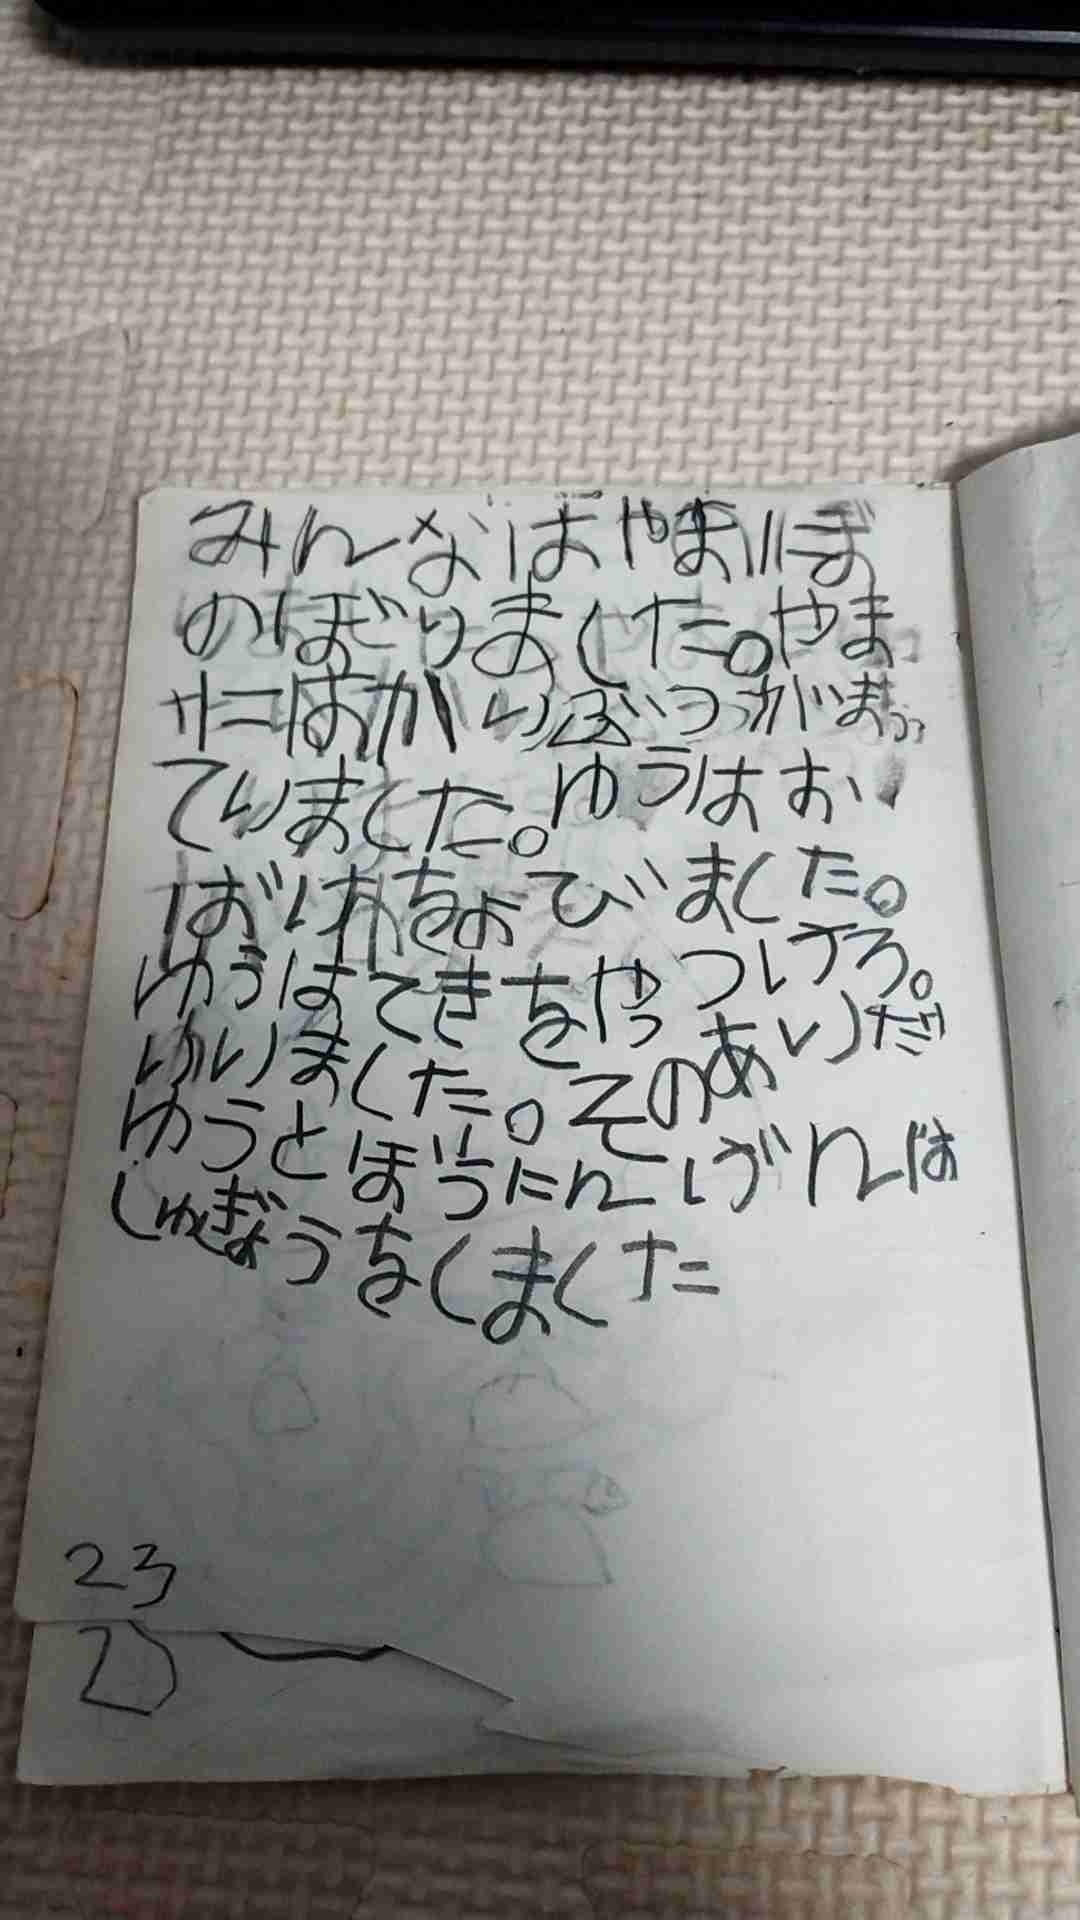 みんなはやまにぼ
のぼりました。やま
にはかいぶつがまっ
ていました。ゆうはお
ばけをよびました。
ゆうはてきをやっつけろ。
いいました。そのあいだ
ゆうとぼうにんげんは
しゅぎょうをしました
23